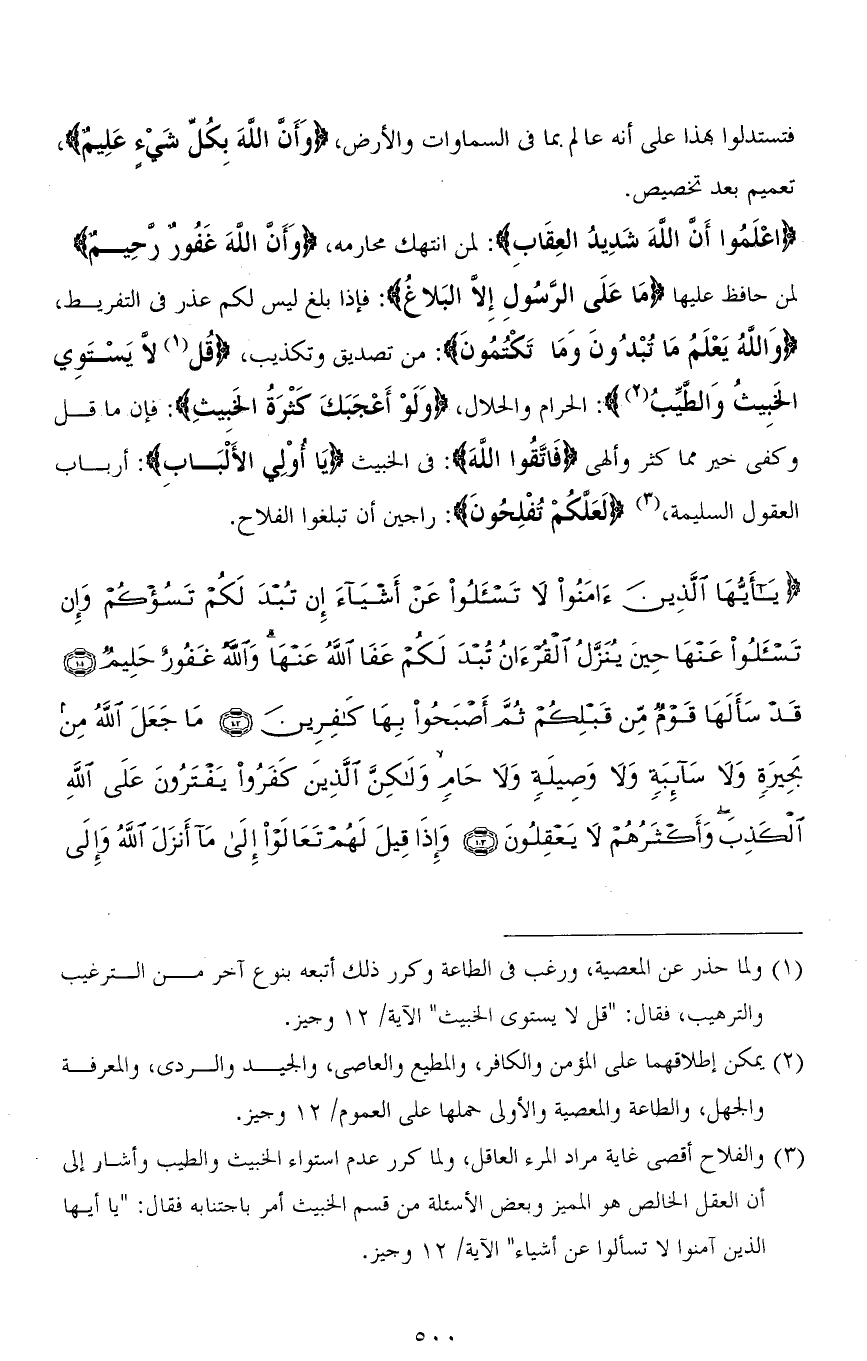 فتستدلوا بهذا على أنه عالم بما فى السماوات والأرض، ﴿وَأَنَّ اللَّهَ بِكُلِّ شَيْءٍ عَلِيمٌ﴾،
تعميم بعد تخصيص.
﴿اعْلَمُوا أَنَّ اللَّهَ شَدِيدُ العِقَابِ﴾: لمن انتهك محارمه، ﴿وَأَنَّ اللَّهَ غَفُورٌ رَّحِيـــمٌ﴾
لمن حافظ عليها ﴿مَا عَلَى الرَّسُولِ إِلاَّ البَلاغُ﴾: فإذا بلغ ليس لكم عذر فى التفريـط،
﴿وَاللَّهُ يَعْلَمُ مَا تُبْدُونَ وَمَا تَكْتُمُونَ﴾: من تصديق وتكذيب، ﴿قُل(١) لاَّ يَسْـتَوِي
الخَبِيثُ وَالطَّيِّبُ(٢)﴾: الحرام والحلال، ﴿وَلَوْ أَعْجَبَكَ كَثْرَةُ الخَبِيثِ﴾: فإن ما قـل
وكفى خير مما كثر وألهى ﴿فَاتَّقُوا اللَّهَ﴾: فى الخبيث ﴿يَا أُوْلِي الأَلْبَــابِ﴾: أربـاب
العقول السليمة،(٣) ﴿لَعَلَّكُمْ تُفْلِحُونَ﴾: راجين أن تبلغوا الفلاح.
﴿ يَـٰٓأَيُّهَا ٱلَّذِينَ ءَامَنُوا۟ لَا تَسْـَٔلُوا۟ عَنْ أَشْيَآءَ إِن تُبْدَ لَكُمْ تَسُؤْكُمْ وَإِن
تَسْـَٔلُوا۟ عَنْهَا حِينَ يُنَزَّلُ ٱلْقُرْءَانُ تُبْدَ لَكُمْ عَفَا ٱللَّهُ عَنْهَا ۗ وَٱللَّهُ غَفُورٌ حَلِيمٌ ١٠١
قَدْ سَأَلَهَا قَوْمٌ مِّن قَبْلِكُمْ ثُمَّ أَصْبَحُوا۟ بِهَا كَـٰفِرِينَ ١٠٢ مَا جَعَلَ ٱللَّهُ مِنۢ
بَحِيرَةٍ وَلَا سَآئِبَةٍ وَلَا وَصِيلَةٍ وَلَا حَامٍ ۙ وَلَـٰكِنَّ ٱلَّذِينَ كَفَرُوا۟ يَفْتَرُونَ عَلَى ٱللَّهِ
ٱلْكَذِبَ ۖ وَأَكْثَرُهُمْ لَا يَعْقِلُونَ ١٠٣ وَإِذَا قِيلَ لَهُمْ تَعَالَوْا۟ إِلَىٰ مَآ أَنزَلَ ٱللَّهُ وَإِلَى
(١) ولما حذر عن المعصية، ورغب فى الطاعة وكرر ذلك أتبعه بنوع آخر مــن الــترغيب
والترهيب، فقال: "قل لا يستوى الخبيث" الآية/ ١٢ وجيز.
(٢) يمكن إطلاقهما على المؤمن والكافر، والمطيع والعاصى، والجيــد والــردى، والمعرفــة
والجهل، والطاعة والمعصية والأولى حملها على العموم/ ١٢ وجيز.
(٣) والفلاح أقصى غاية مراد المرء العاقل، ولما كرر عدم استواء الخبيث والطيب وأشـار إلى
أن العقل الخالص هو المميز وبعض الأسئلة من قسم الخبيث أمر باجتنابه فقال: "يا أيـها
الذين آمنوا لا تسألوا عن أشياء" الآية/ ١٢ وجيز.
٥٠٠